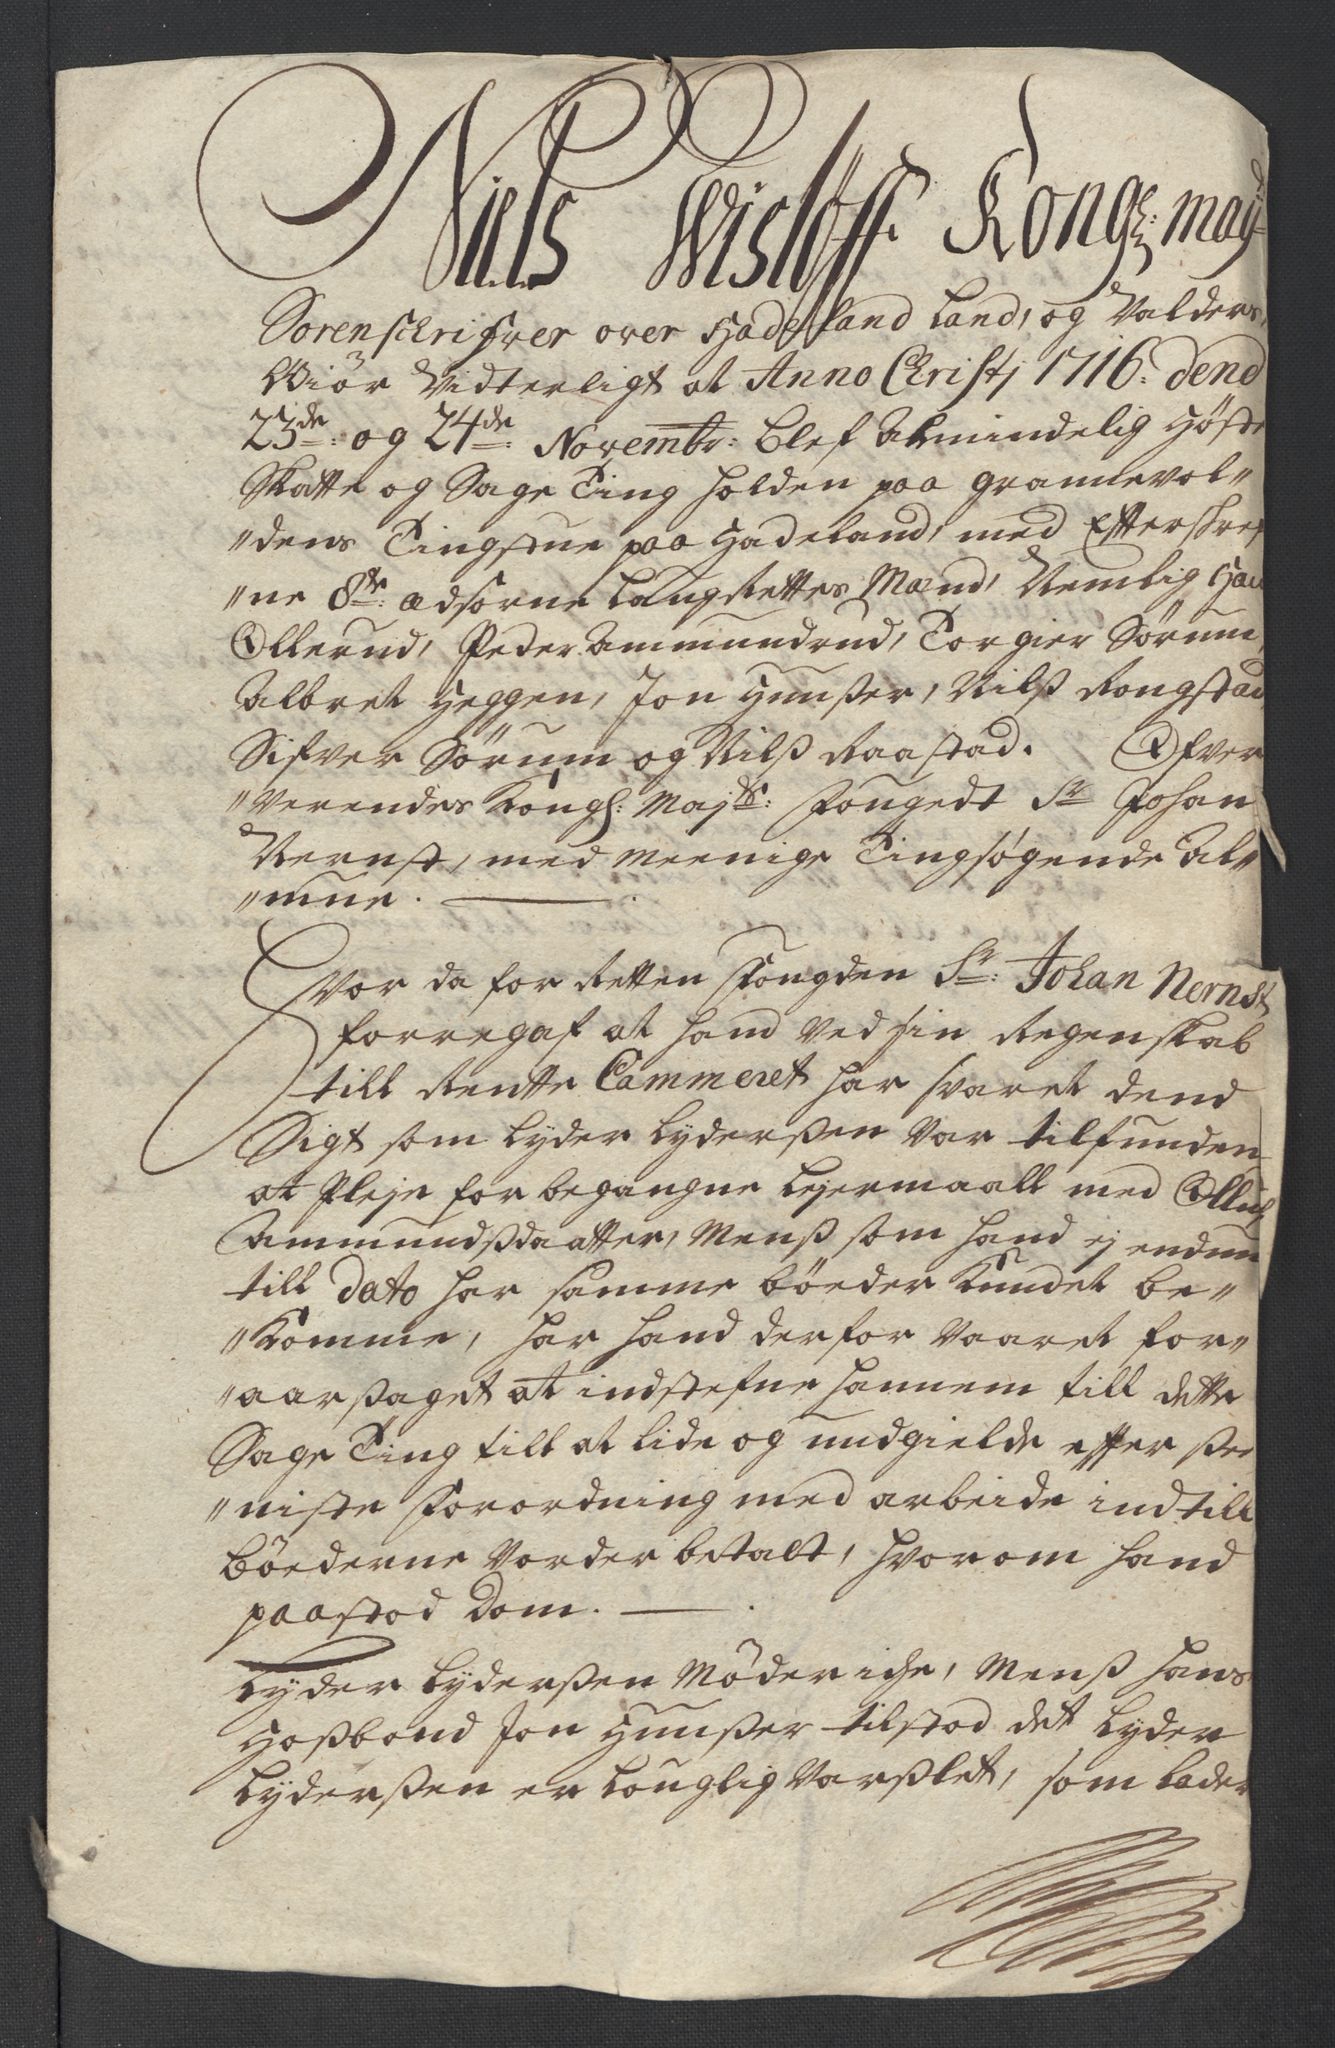 Niels Wisløff Kongl: may
Sorenschrifver over Hadeland Land, og Valders,
Giör Vidterligt at Anno Christj 1716. dend
23de: og 24de: Novembr: blef Almindelig Höste
Skatte og Sage Ting holden paa Grannevol„
„dens Tingstue paa Hadeland, med Efterskref
„ne 8te: ædsorne Laug Rettes Mænd, Nemblig
Ollerud, Peder Ammundrud, Torgier Sørum,
Albret Heggen, Jon Hunßer, Nilß Rongstad,
Sifver Sørum og Nilß Raastad. Ofver
„Verendes Kongl: Maj:ts: Fougedt Sr Johan
Nernst, med Meenige Tingsøgende Al„
„mue.
Hvor da for Retten Fougden Sr: Johan Nernst
forregaf at hand Ved sin Regenskab
till Rentte Cammeret har svaret dend
Sigt som Lyder Lyderßen Var tilfunden
at Pleje for begangne Lejermaall med Olluf
Ammundßdaatter, Menß som hand ej endnu
till Dato har samme böeder Kundet be„
„Komme, har hand derfor Vaaret for„
„aarßaget at indstefne hannem till dette
Sage Ting till at lide og undgielde effter ße
„niste Forordning med arbeide indtill
böederne Vorder betalt, hvorom hand
paastod Dom.
Lyder Lyderßen Möder iche, Menß hans
Hoßbond Jon Hunßer tilstod det Lyder
Lyderßen er Louglig Varßlet, som Lader